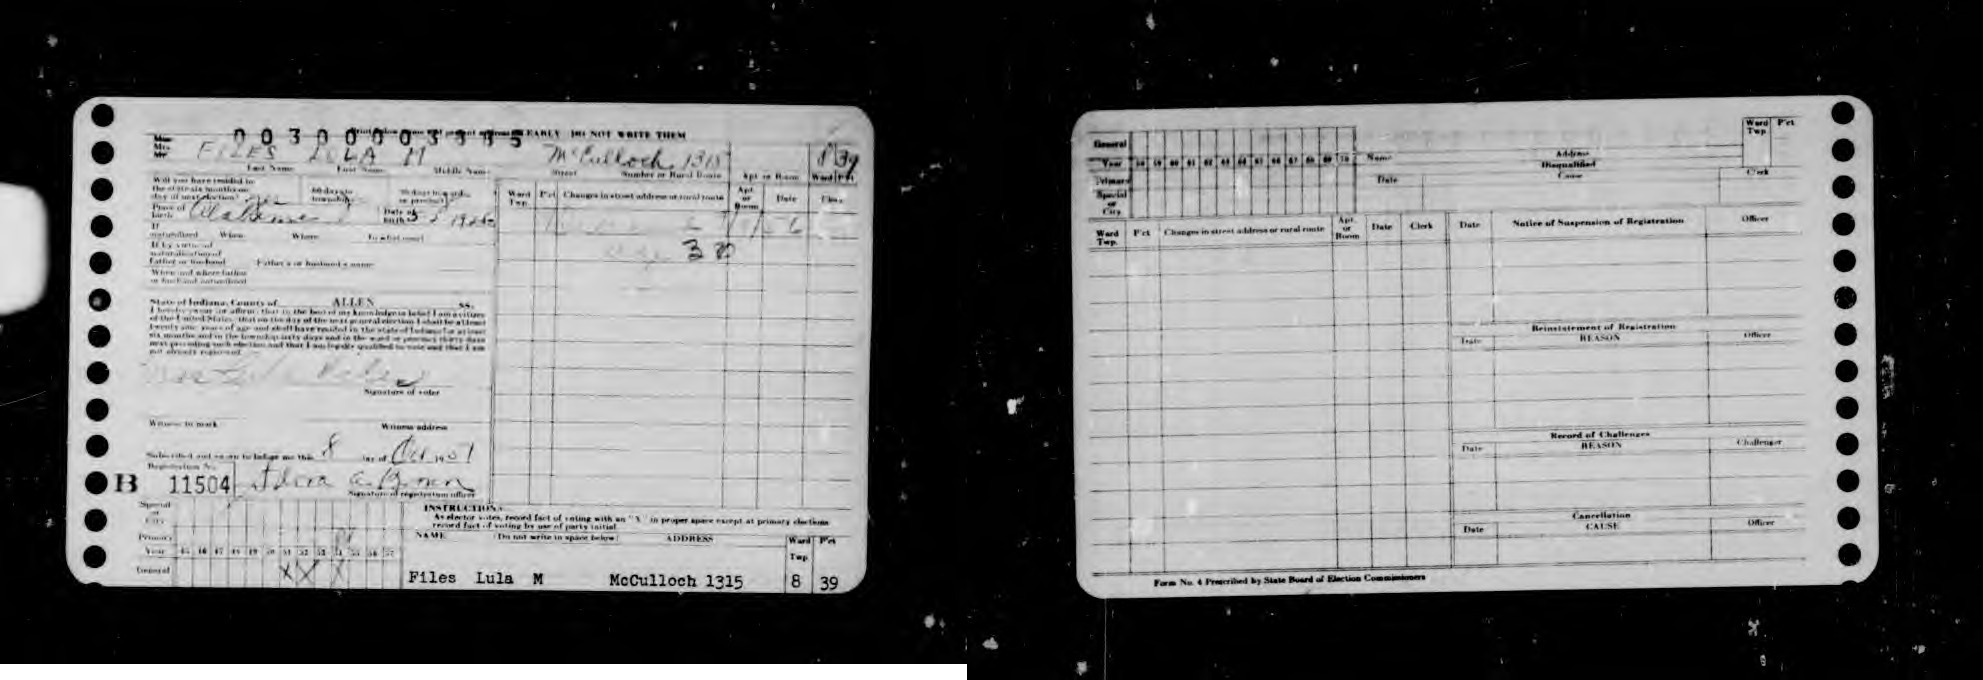 00300003385
EARLY DO NOT WRITE THEM
Mrs.
Mr.
FILES LULA M McCulloch 1315 8 39
Last Name First Name Middle Name Street Number or Rural Route Apt or Room Ward P'ct
Will you have resided in
the state six months on 60 days in
day of next election? yes township
Place of
birth Alabama Date of birth
If
naturalized When Where To what court
If by virtue of
naturalization of
father or husband Father's or husband's name
When and where father
or husband naturalized
Ward Twp. P'ct Changes in street address or rural route Apt. or Room Date Clerk
State of Indiana, County of ALLEN ss.
I hereby swear (or affirm) that to the best of my knowledge or belief I am a citizen
of the United States, that on the day of the next general election I shall be at least
twenty-one years of age and shall have resided in the state of Indiana for at least
six months and in the township sixty days and in the ward or precinct thirty days
next preceding such election and that I am legally qualified to vote and that I am
not already registered
Signature of voter
Witness to mark Witness address
Subscribed and sworn to before me this 8 day of Oct 1951
Registration No.
B 11504
Signature of registration officer
INSTRUCTIONS
As elector votes, record fact of voting with an "X" in proper space except at primary elections
record fact of voting by use of party initial.
Special
or
City
Primary
Year 45 46 47 48 49 50 51 52 53 54 55 56 57
General X X X
NAME (Do not write in space below) ADDRESS Ward Twp P'ct
Files Lula M McCulloch 1315 8 39
General
Year 58 59 60 61 62 63 64 65 66 67 68 69 70
Primary
Special
or
City
Name Address Ward Twp. P'ct
Disqualified
Date Cause Clerk
Ward Twp. P'ct Changes in street address or rural route Apt. or Room Date Clerk
Date Notice of Suspension of Registration Officer
Reinstatement of Registration
Date REASON Officer
Record of Challenges
Date REASON Challenger
Cancellation
Date CAUSE Officer
Form No. 4 Prescribed by State Board of Election Commissioners